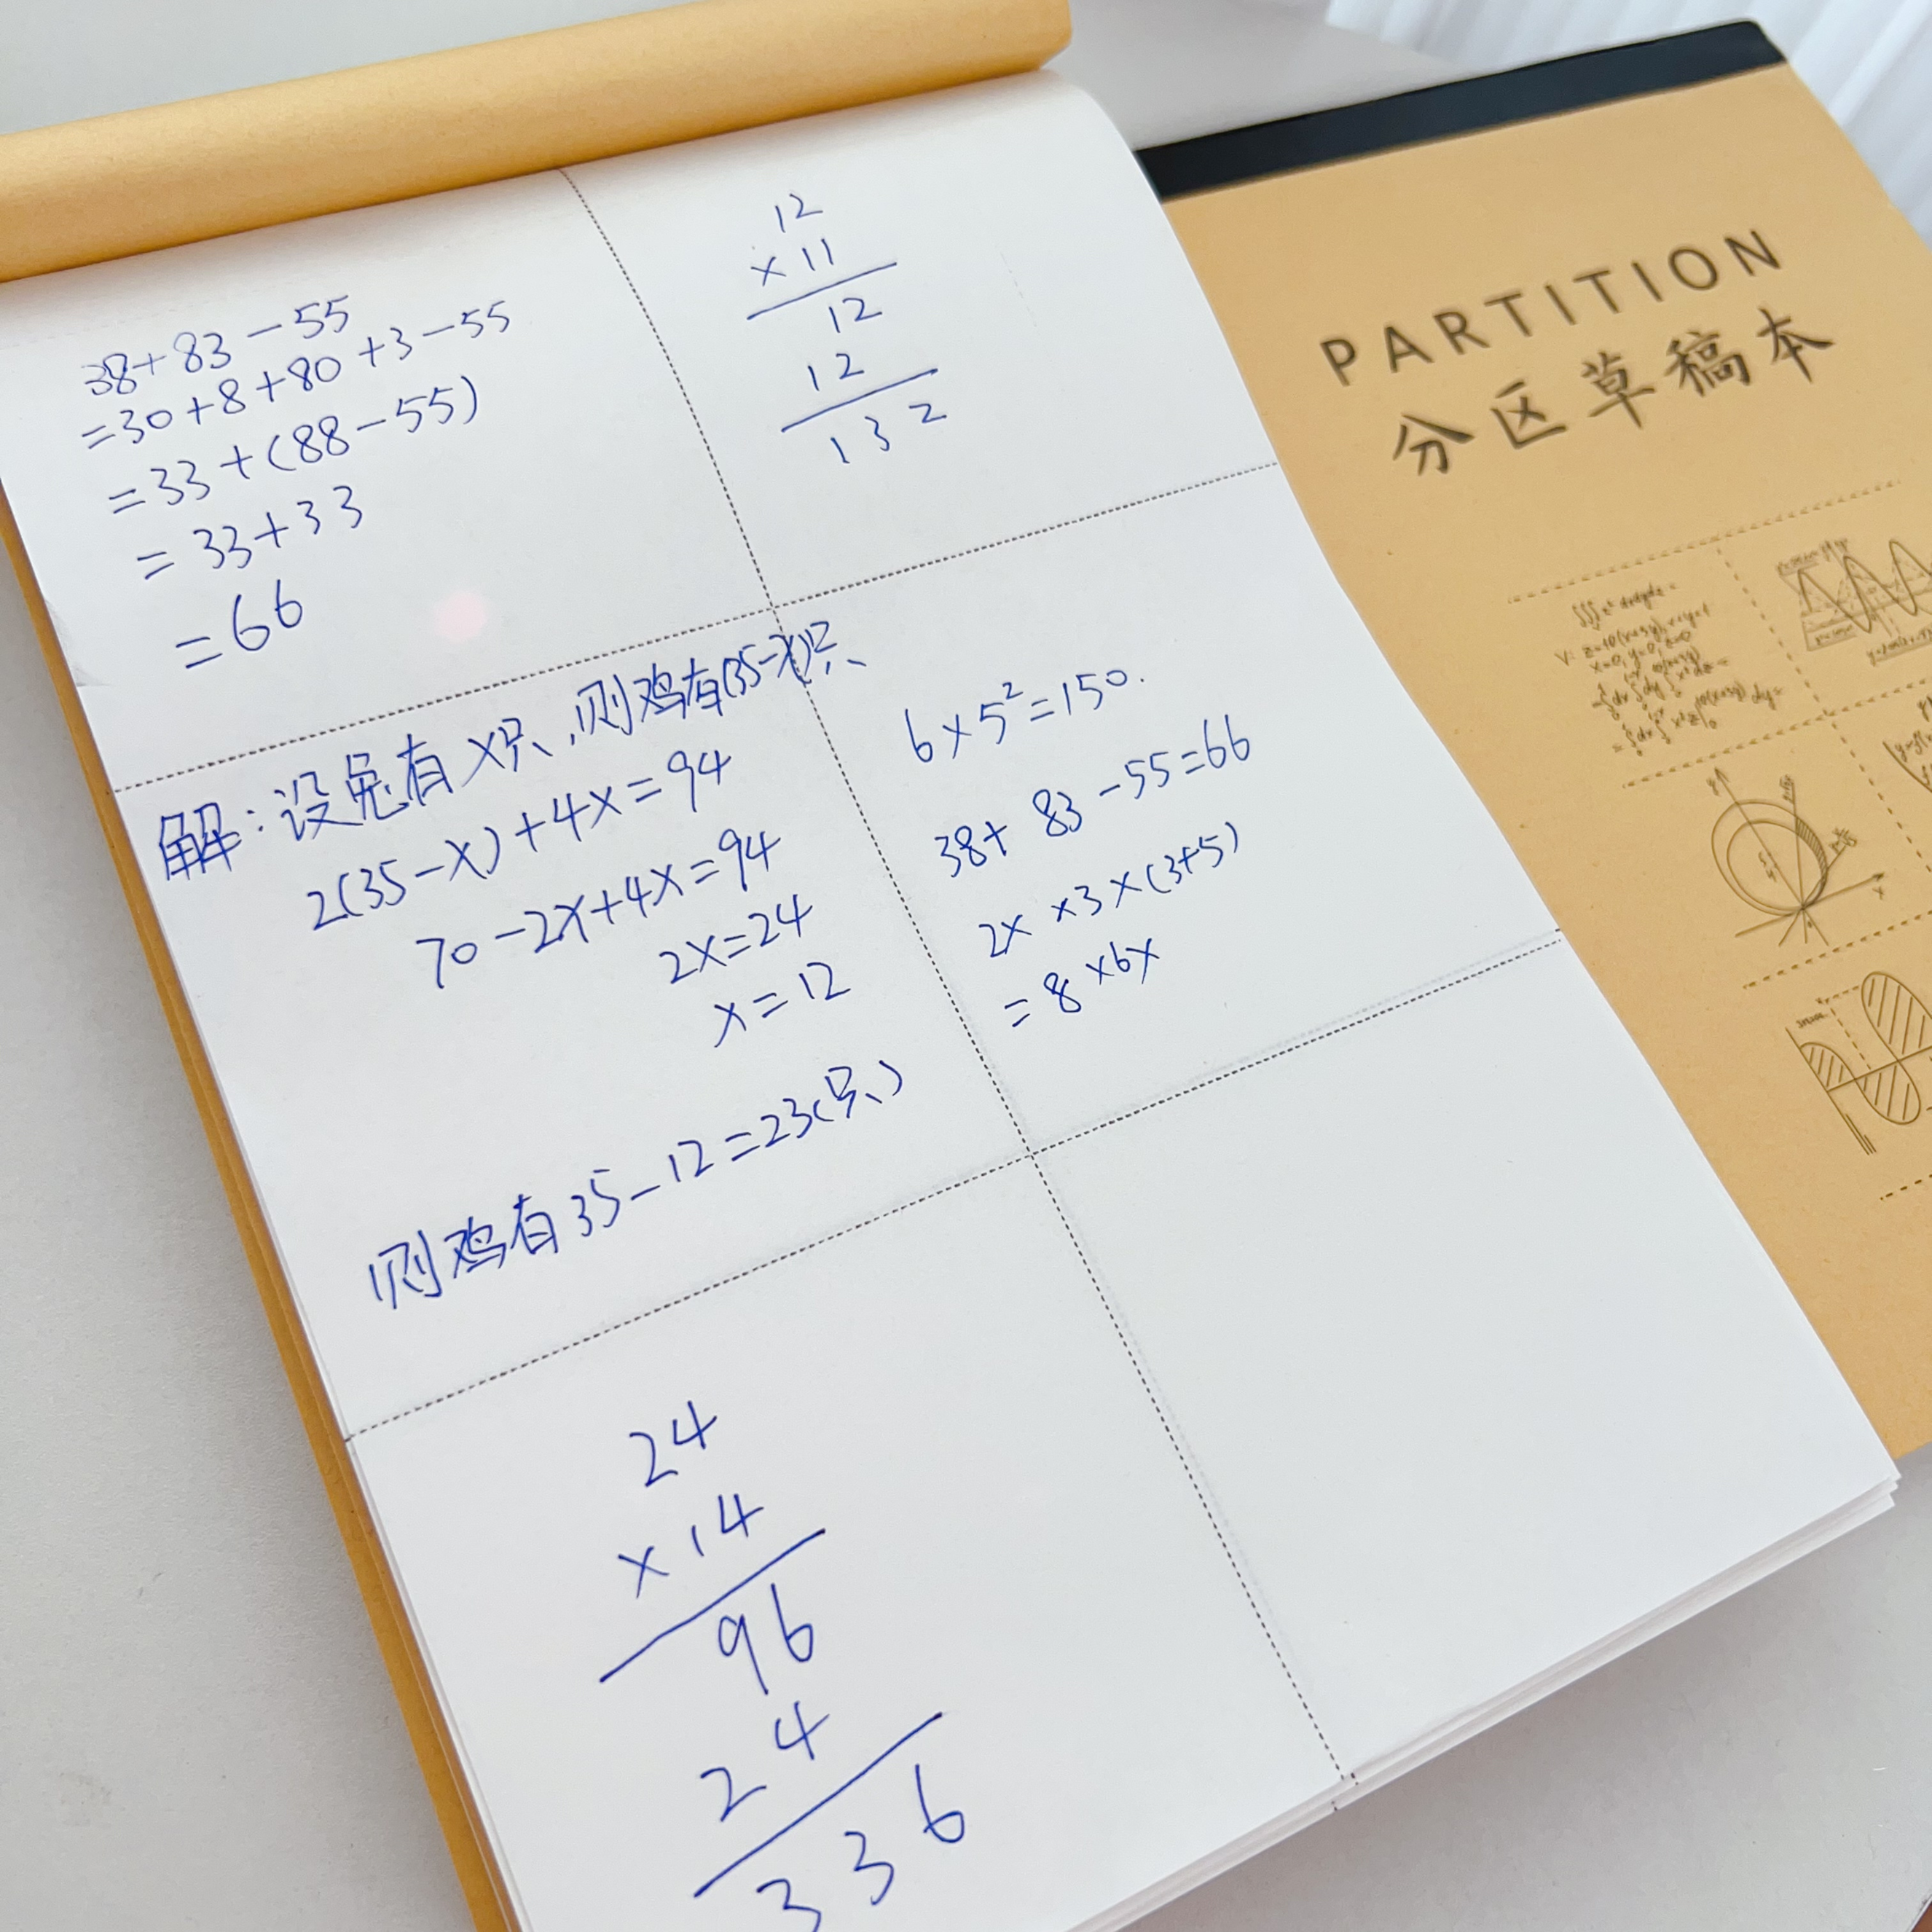 38+83-55
=30+8+80+3-55
=33+(88-55)
=33+33
=66
12
×11
12
12
132
解:设兔有x只,则鸡有(35-x)只
2(35-x)+4x=94
70-2x+4x=94
2x=24
x=12
则鸡有35-12=23(只)
6×5²=150.
38+83-55=66
2x×3×(3+5)
=8×6x
24
×14
96
24
336
PARTITION
分区草稿本